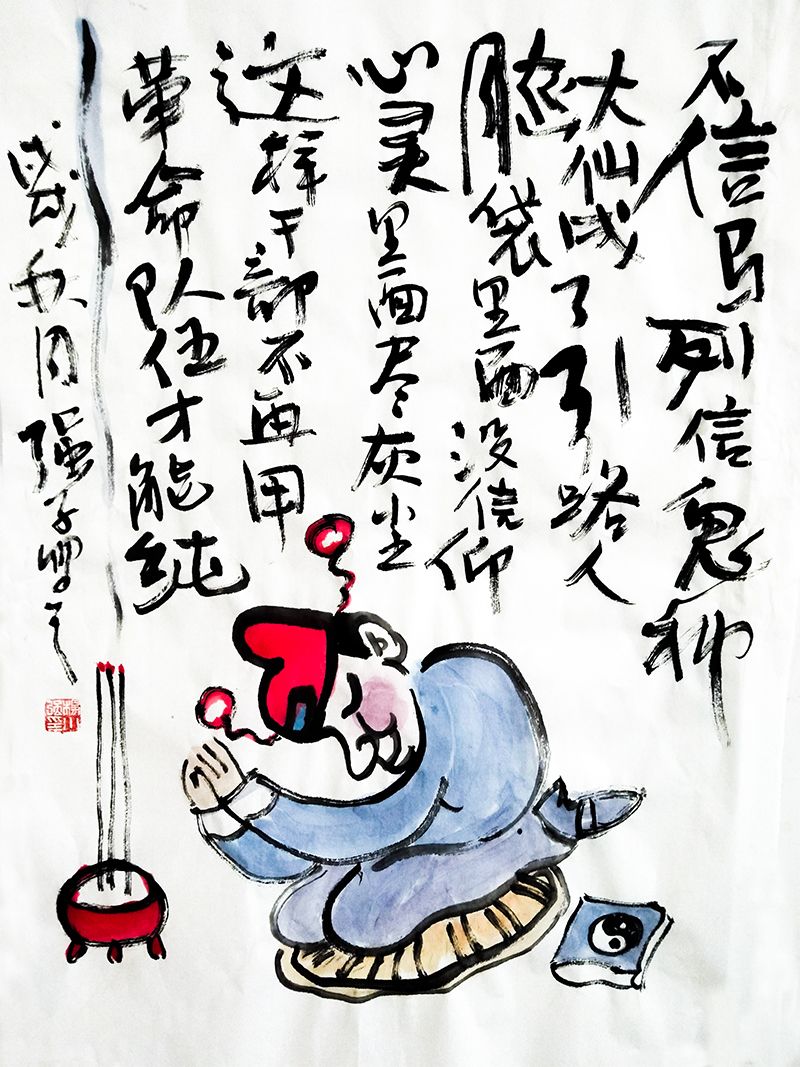 不信马列信鬼神
大仙成了引路人
脑袋里面没信仰
心灵里面尽灰尘
这样干部不再用
革命队伍才能纯
戊戌秋月强子